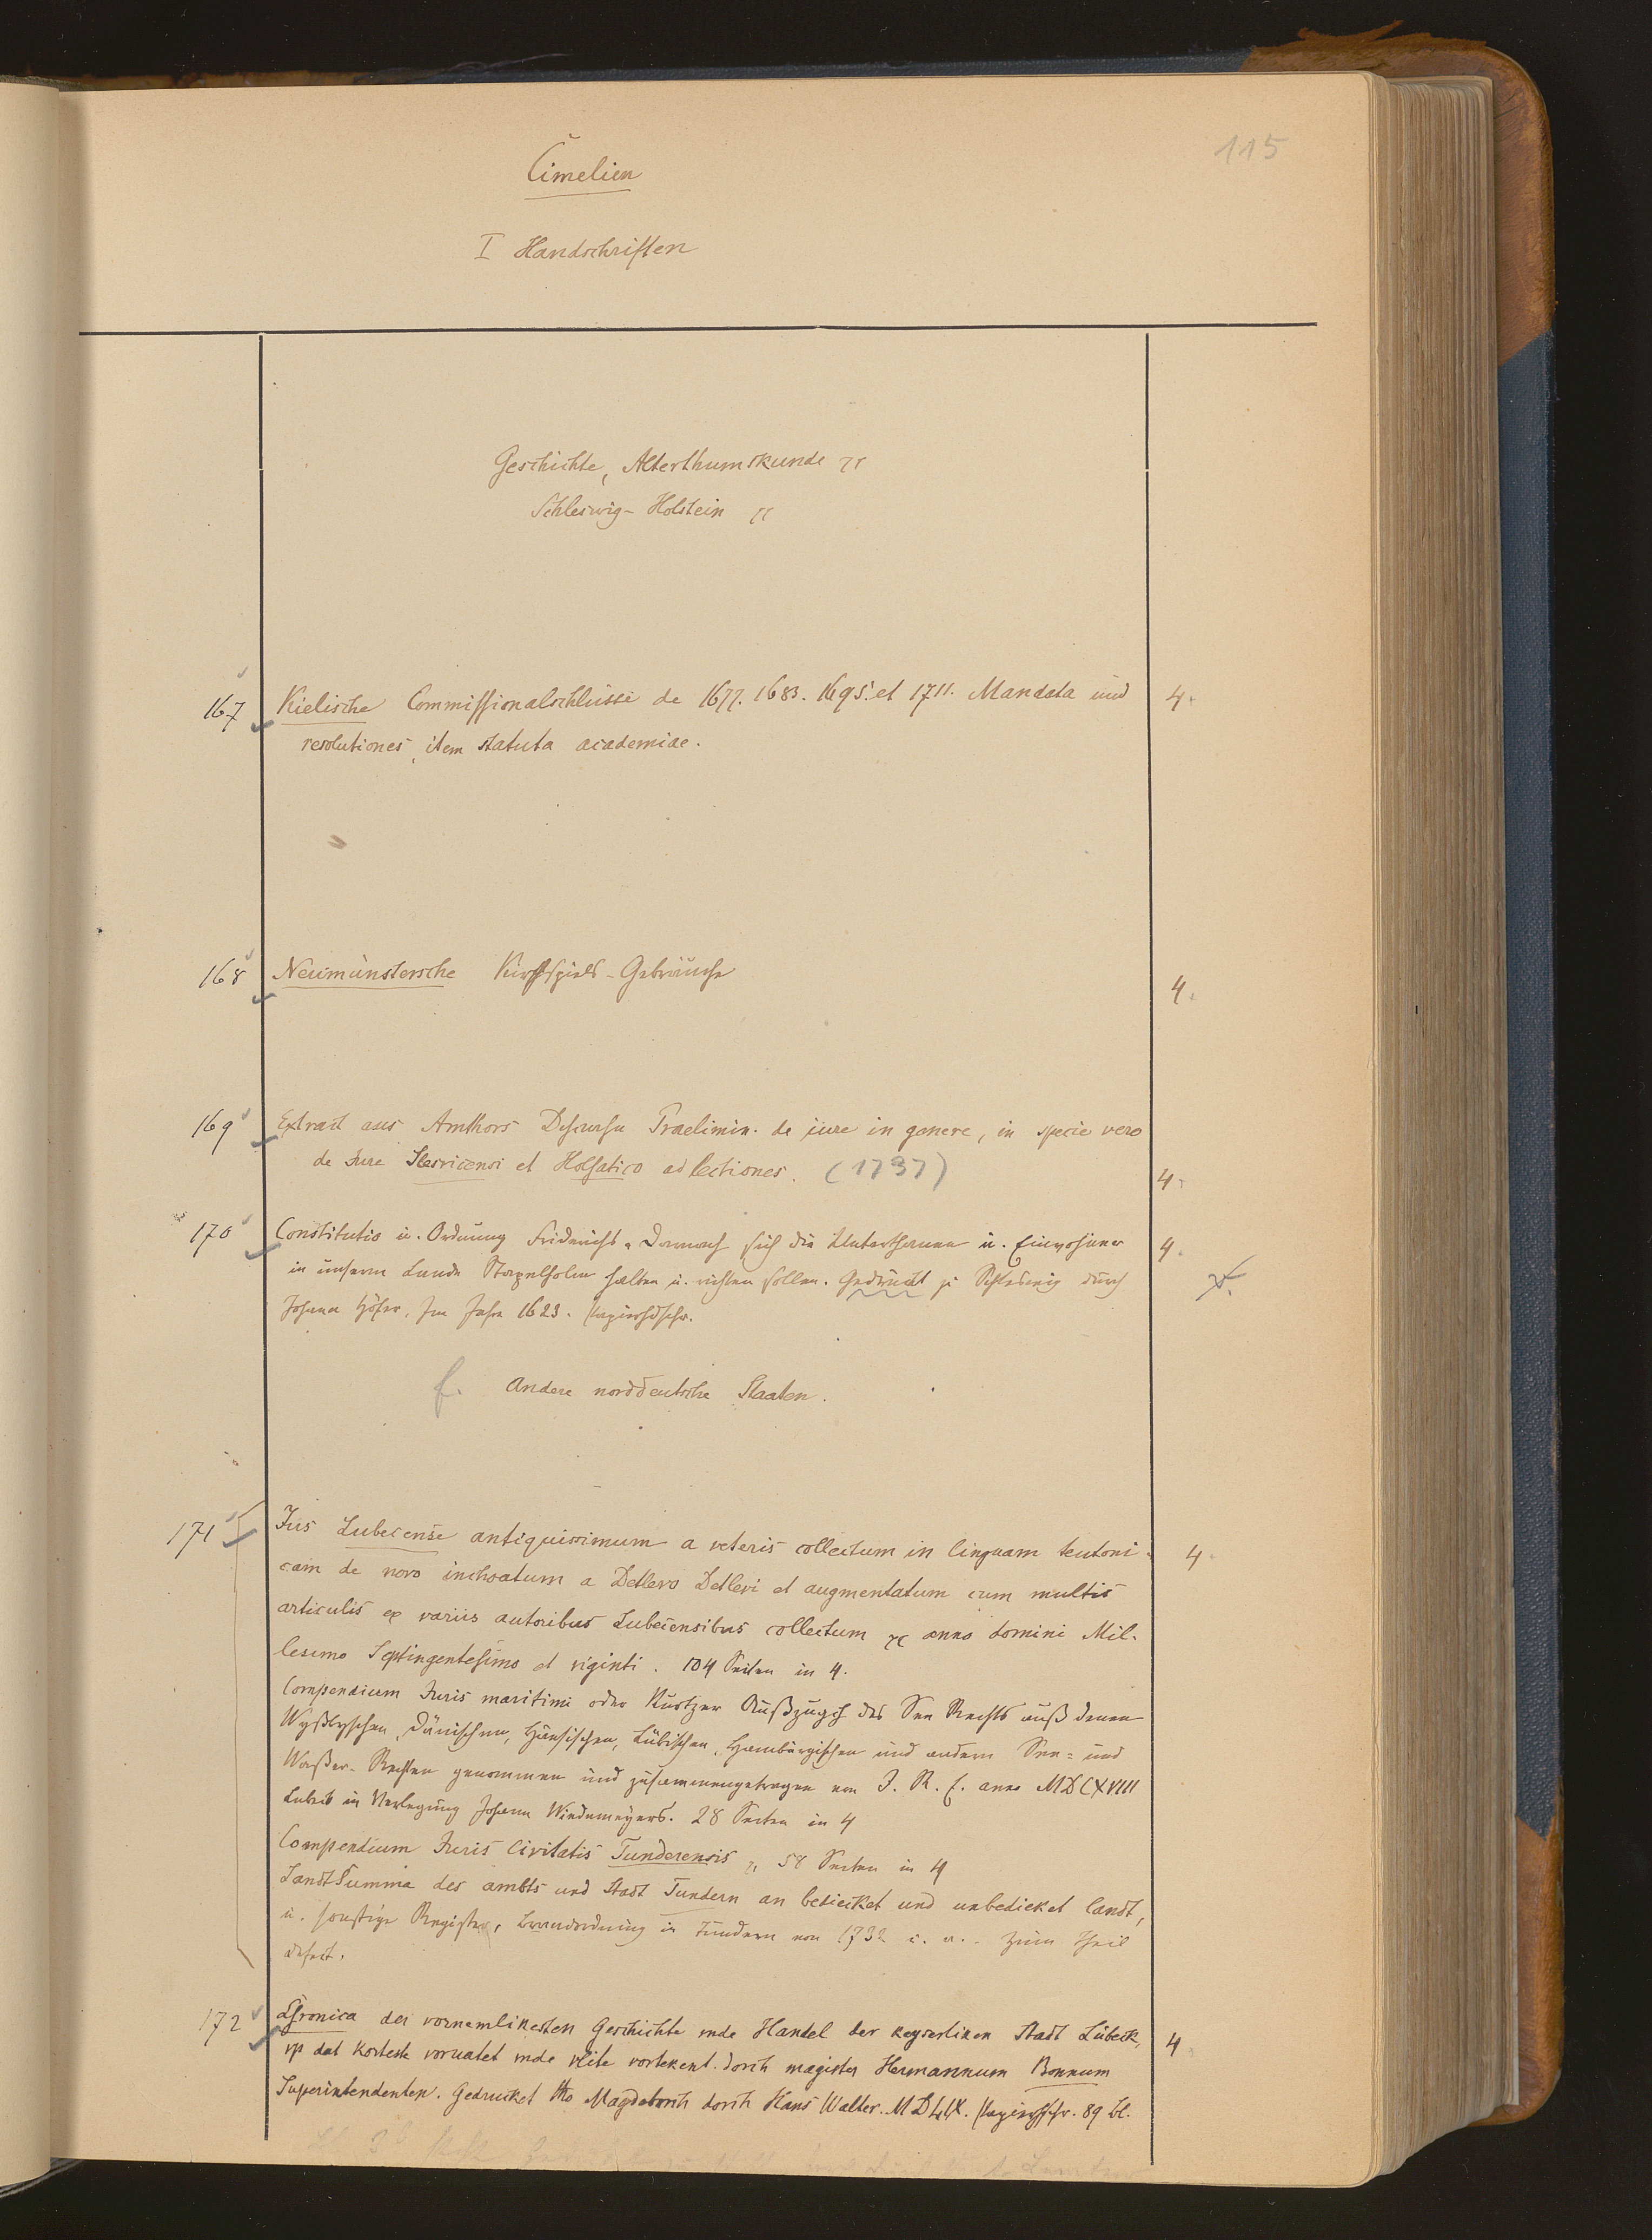 115
Cimelien
I Handschriften
Geschichte, Alterthumskunde
Schleswig-Holstein
167 Kielische Commissionalschlüsse de 1677. 1683. 1695. et 1711. Mandata und 4.
resolutiones, item statuta academiae.
168 Neumünstersche Kirchspiels-Gebräuche 4.
169 Extract aus Amthors Discursu Praelimin. de iure in genere, in specie vero
de Jure Slesvicensi et Holsatico ad lectiones. (1737) 4.
170 Constitutio u. Ordnung Friderichs. Darnach sich die Unterthanen u. Einwohner 4.
in unserm Lande Stapelholm halten u. richten sollen. Gedruckt zu Schleswig durch
Johann Hölser. Im Jahre 1623. Papierhdschr.
f. Andere norddeutsche Staaten.
171 Jus Lubecense antiquissimum a veteris collectum in linguam teutoni- 4.
cam de novo inchoatum a Detlevo Detlevi et augmentatum cum multis
articulis ex variis autoribus Lubecensibus collectum anno domini Mil-
lesimo Septingentesimo et viginti. 104 Seiten in 4.
Compendium Juris maritimi oder Kurtzer Außzugch des See Rechts auß denen
Wyßbyschen, Dänischen, Hänsischen, Lübischen, Hamburgischen und andern See= und
Waßer-Rechten genommen und zusammengetragen von J. R. C. anno MDCXVIII
Lubeck in Verlegung Johann Wiedemeyers. 28 Seiten in 4
Compendium Juris Civitatis Tunderensis 58 Seiten in 4
LandtSumma des ambts und Stadt Tundern an bedeicket und unbedicket landt,
u. sonstige Register, Brandordnung in Tundern von 1732 u. a. zum Theil
defect.
172 Chronica der vornemlikesten Geschichte unde Handel der keyserliken Stadt Lübeck, 4
up dat korteste voruatet unde vlite vortekent. dorch magister Hermannum Bonnum
Superintendenten. Gedrucket tho Magdeborch dorch Hans Walter. Papierhschr. 89 Bl.